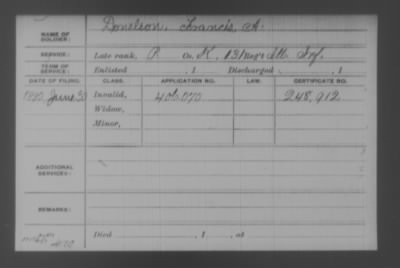 NAME OF SOLDIER: Donelson, Francis A.
SERVICE: Late rank, P Co. K, 131 Reg't Ill. Inf.
TERM OF SERVICE: Enlisted , 1 Discharged , 1
DATE OF FILING. CLASS. APPLICATION NO. LAW. CERTIFICATE NO.
1880, June 30 Invalid, 406,070 248,912
Widow,
Minor,
ADDITIONAL SERVICES:
REMARKS:
Died , 1 , at